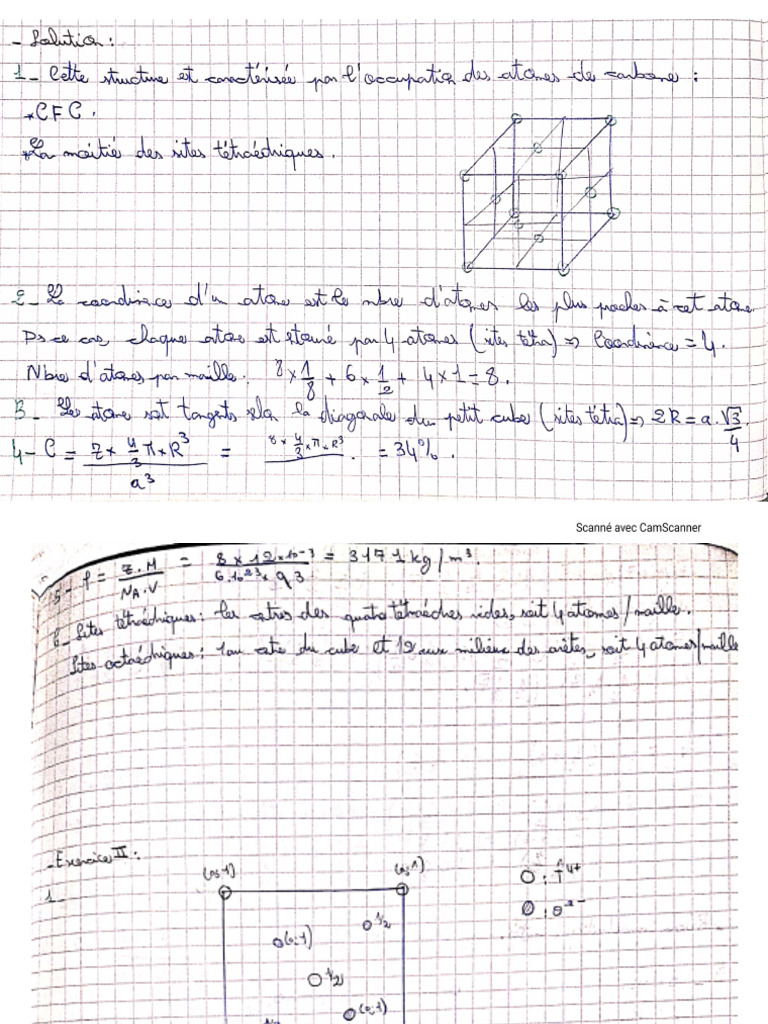 - Solution :
1 - Cette structure est caractérisée par l'occupation des atomes de carbone :
* CFC .
* La moitié des sites tétraédriques .
2 - La coordinence d'un atome est le nbre d'atomes les plus proches à cet atome.
Ds ce cas, chaque atome est etouré par 4 atomes (sites tétra) => Coordinence = 4.
Nbre d'atomes par maille : 8 x 1/8 + 6 x 1/2 + 4 x 1 = 8 .
3 - Les atome sont tangents selon la diagonale du petit cube (sites tétra) => 2R = a . √3/4 .
4 - C = z x 4/3 π x R³ / a³ = 8 x 4/3 x π x R³ / . = 34% .
Scanné avec CamScanner
5 - ρ = z . M / NA . V = 8 x 12 x 10-3 / 6.10²³ x a3 = 3171 kg/m³.
6 - Sites tétraédriques : les centres des quatre tétraèdres vides, soit 4 atomes/maille.
Sites octaédriques : 1 au centre du cube et 12 aux milieux des arêtes, soit 4 atomes/maille
- Exercice II :
1 -
(0,1) (0,1)
O : Ti⁴⁺
O : O²⁻
1/2
(0,1)
1/2
(0,1)